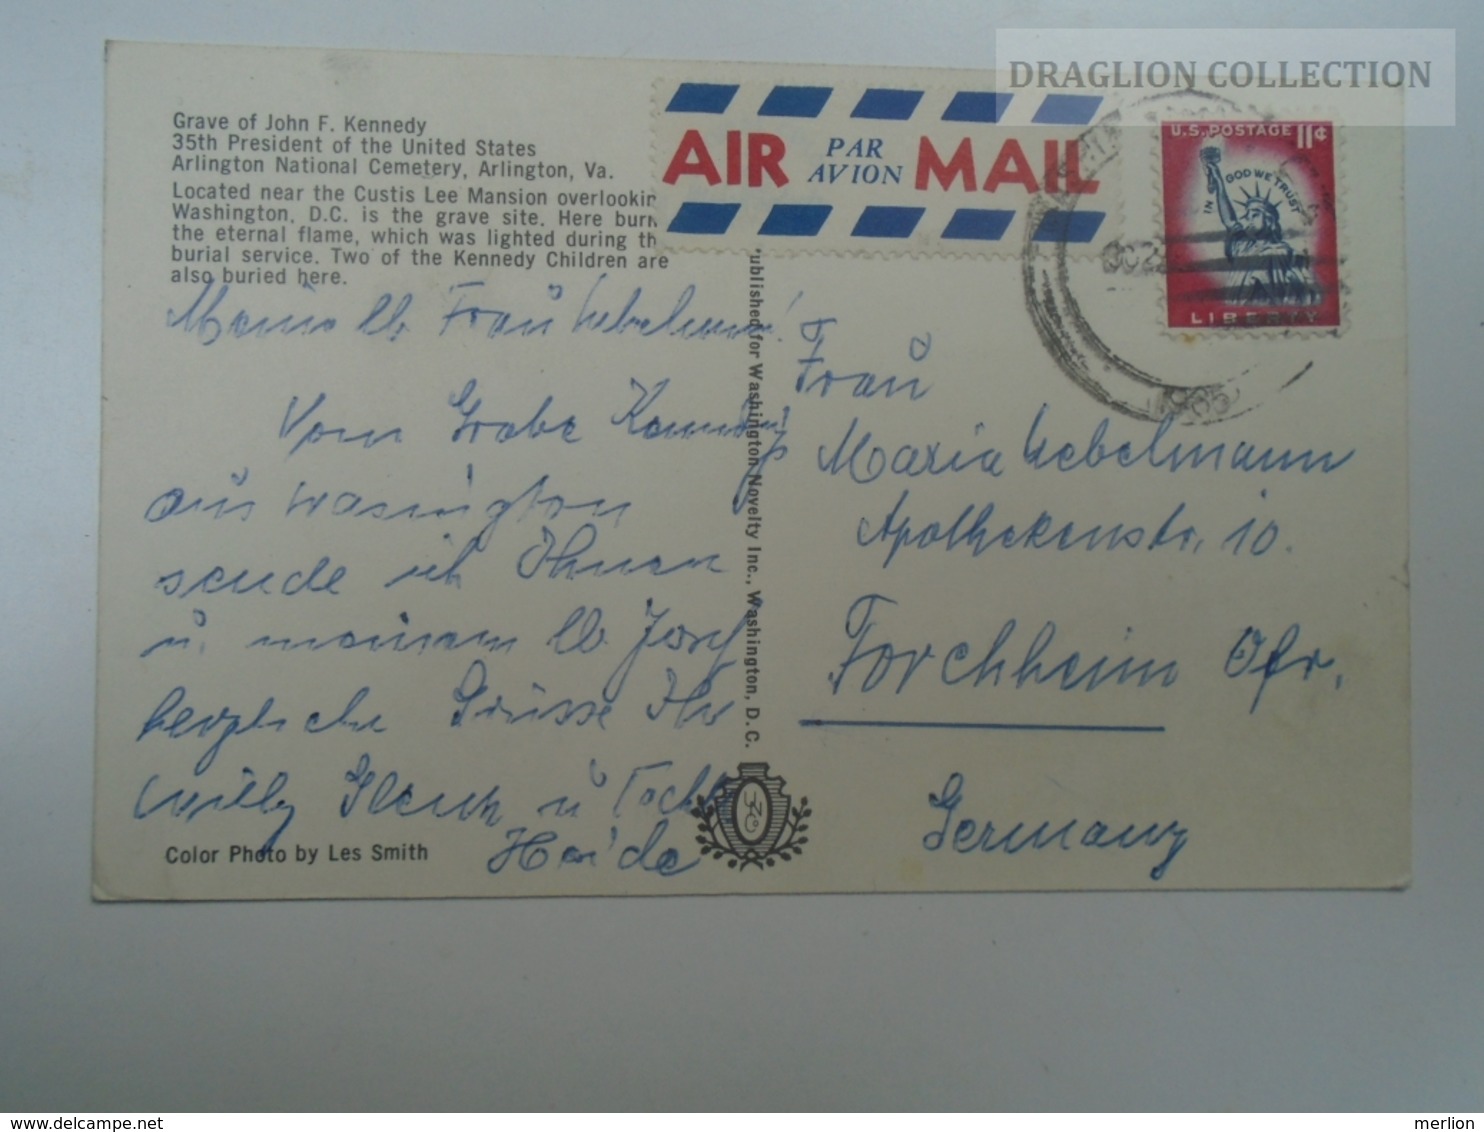 DRAGLION COLLECTION
Grave of John F. Kennedy
35th President of the United States
Arlington National Cemetery, Arlington, Va.
Located near the Custis Lee Mansion overlookin
Washington, D.C. is the grave site. Here burn
the eternal flame, which was lighted during th
burial service. Two of the Kennedy Children are
also buried here.
AIR PAR AVION MAIL
U.S. POSTAGE 11¢
IN GOD WE TRUST
LIBERTY
1965
Meine lb Frau Uebelmann!
Vom Grabe Kennedys
aus Wasington
sende ich Ihnen
u. meinem lb Josef
herzliche Grüsse Ihr
Willy u Tocht
Heide
Color Photo by Les Smith
ublished for Washington Novelty Inc., Washington, D.C.
Frau
Maria Uebelmann
Apothekenstr. 10.
Forchheim Ofr.
Germany
delcampe.net
merlion